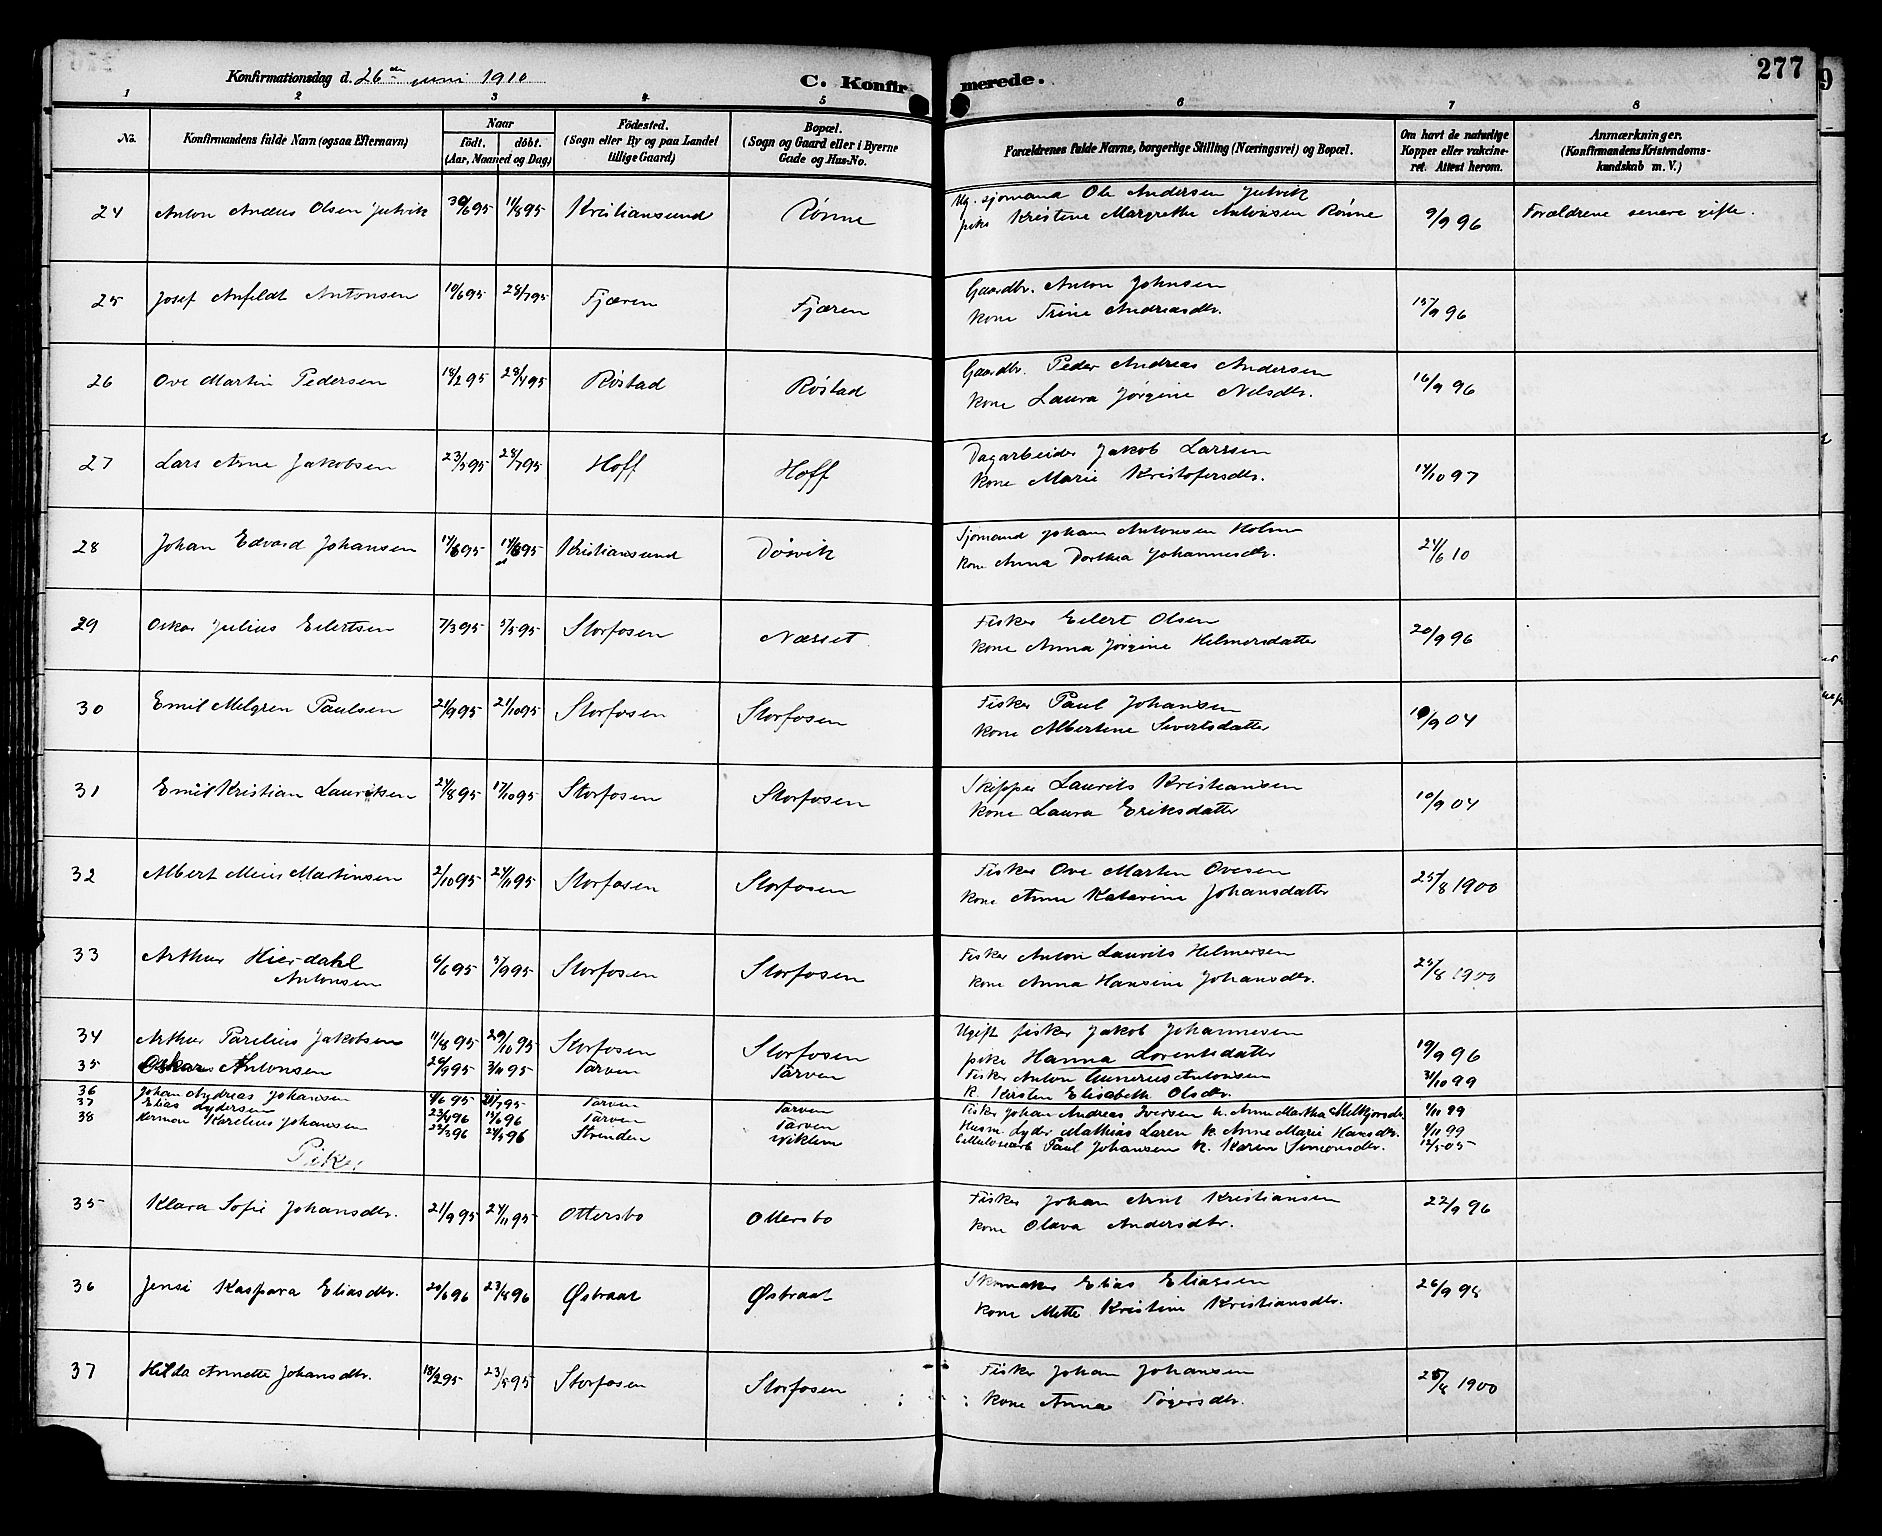 Konfirmationsdag d. 26de juni 1910
C. Konfirmerede.
277
1 2 3 4 5 6 7 8
No.
Konfirmandens fulde Navn (ogsaa Efternavn)
Naar
født. døbt.
(Aar, Maaned og Dag)
Fødested.
(Sogn eller By og paa Landet
tillige Gaard)
Bopæl.
(Sogn og Gaard eller i Byerne
Gade og Hus-No.
Forældrenes fulde Navne, borgerlige Stilling (Næringsvei) og Bopæl.
Om havt de naturlige
Kopper eller vakcine-
ret. Attest herom.
Anmærkninger.
(Konfirmandens Kristendoms-
kundskab m. V.)
24 Anton Andeus Olsen Jutvik 30/6 95 11/8 95 Kristiansund Rønne Ug. sjømand Ole Andersen Jutvik
pike Kristine Margrethe Antonsen Rønne 9/9 96 Forældrene senere gifte.
25 Josef Anfeldt Antonsen 10/6 95 28/7 95 Fjæren Fjæren Gaardbr. Anton Johnsen
kone Trine Andreasdtr. 15/9 96
26 Ove Martin Pedersen 18/2 95 28/4 95 Røstad Røstad Gaardbr. Peder Andreas Andersen
kone Laura Jørgine Nilsdtr. 16/9 96
27 Lars Arne Jakobsen 23/5 95 28/7 95 Hoff Hoff Dagarbeider Jakob Larssen
kone Marie Kristofersdtr. 14/10 97
28 Johan Edvard Johansen Kristiansund Døsvik Sjømand Johan Antonsen Holm
kone Anna Dorthea Johannesdtr. 24/6 10
29 Oskar Julius Eilertsen 7/3 95 5/5 95 Storfosen Næsset Fisker Eilert Olsen
kone Anna Jørgine Helmersdatter 20/9 96
30 Emil Melgren Paulsen 21/9 95 21/10 95 Storfosen Storfosen Fisker Paul Johansen
kone Albertine Sivertsdatter 10/9 04
31 Emil Kristian Lauritsen 24/8 95 17/10 95 Storfosen Storfosen Skipper Laurits Kristiansen
kone Laura Eriksdatter 10/9 04
32 Albert Meier Martinsen 2/10 95 24/11 95 Storfosen Storfosen Fisker Ove Martin Ovesen
kone Anne Katarina Johansdatter 25/8 1900
33 Arthur Hierdahl
Antonsen 6/6 95 5/9 95 Storfosen Storfosen Fisker Anton Laurits Helmersen
kone Anna Hansine Johansdtr. 25/8 1900
34 Arthur Parelius Jakobsen 11/8 95 20/10 95 Storfosen Storfosen Ugift fisker Jakob Johannesen
pike Hanna Lorentsdatter 19/9 96
35 Oskar Antonsen 26/9 95 3/11 95 Tarven Tarven Fisker Anton Gunerius Antonsen
k. Kirsten Elisabeth Olsdtr. 31/10 99
36 Johan Andreas Johansen 4/6 95 21/7 95 Tarven Tarven Fisker Johan Andreas Iversen k. Anne Martha Melkjorsdr. 1/11 99
37 Elias Lydersen 23/4 96 14/6 96 Tarven Tarven Husm. Lyder Mathias Larsen k. Anne Marie Hansdtr. 1/11 99
38 Herman Karelius Johansen 22/3 96 24/5 96 Stranden Viklem Cellulosearb Paul Johansen k. Karen Simonsdtr. 12/5 05
Piker
35 Klara Sofie Johansdtr. 21/9 95 24/11 95 Ottersbo Ottersbo Fisker Johan Arnt Kristiansen
kone Olava Andersdtr. 22/9 96
36 Jensi Kaspara Eliasdtr. 20/6 96 23/8 96 Østraat Østraat Skomaker Elias Eliassen
kone Mette Kristine Kristiansdtr. 26/9 98
37 Hilda Annette Johansdtr. 18/2 95 23/5 95 Storfosen Storfosen Fisker Johan Johansen
kone Anna Tøgersdtr. 25/8 1900